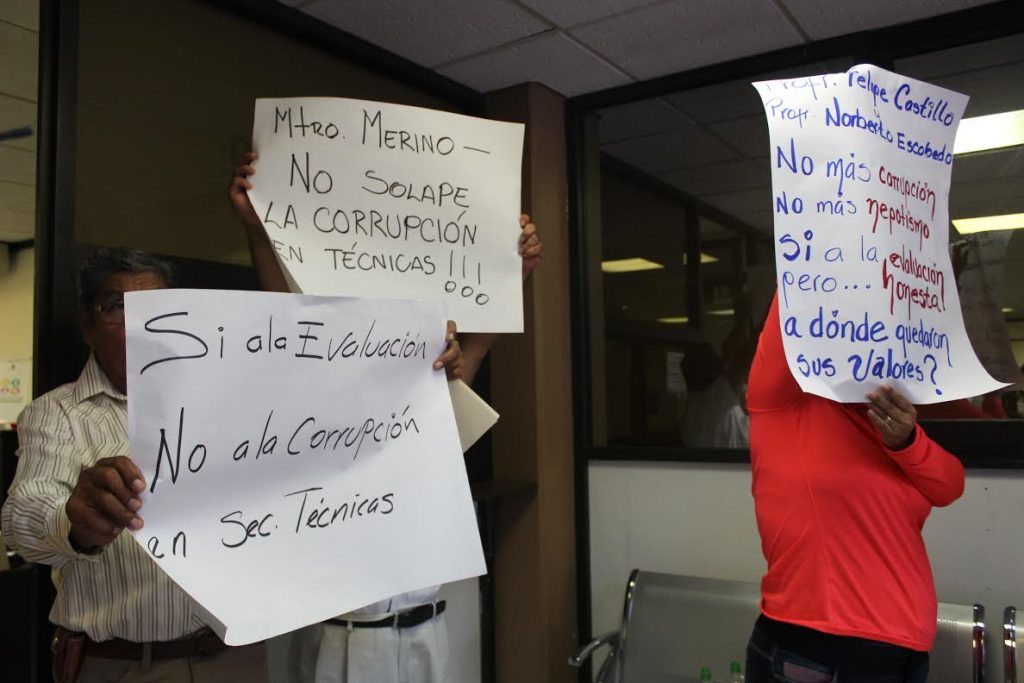 Mtro. MERINO —
NO SOLAPE
LA CORRUPCIÓN
EN TÉCNICAS !!!
Si a la Evaluación
No a la Corrupción
en Sec. Técnicas
Profr. Felipe Castillo
Profr. Norberto Escobedo
No más corrupción
No más nepotismo
Si a la evaluación
pero... honesta!
a dónde quedaron
sus valores?